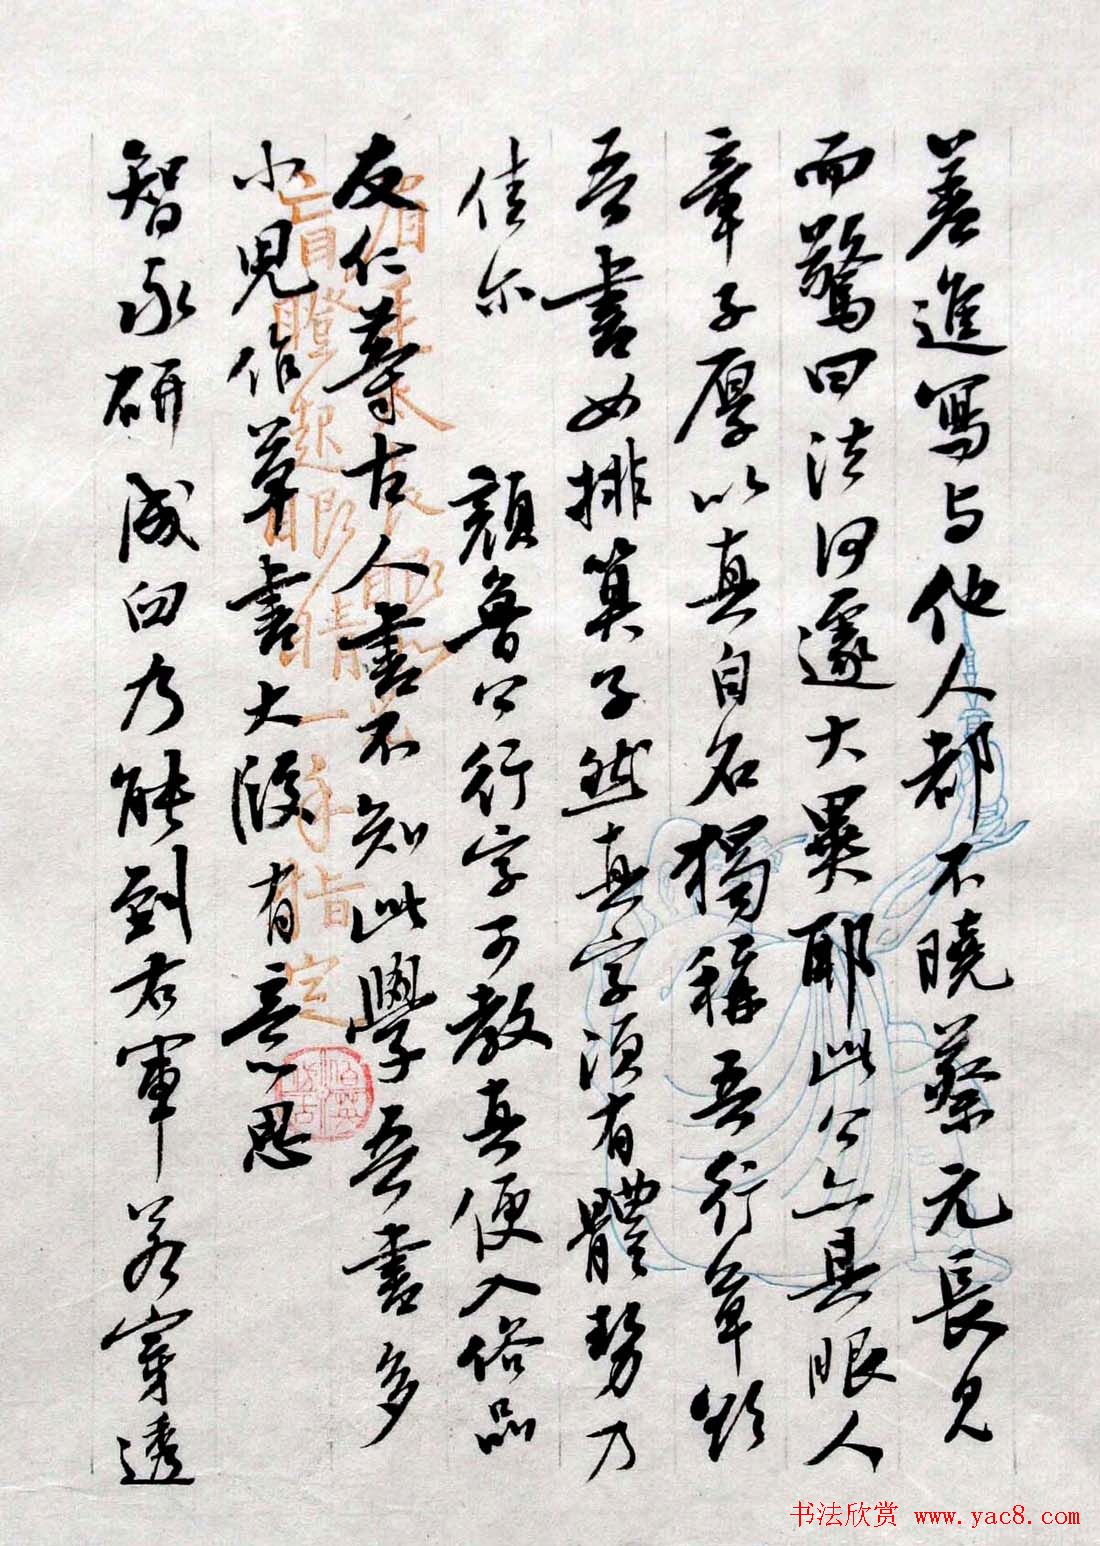 差進寫与他人都不曉蔡元長見
而驚曰法何遽大異耶此公亦具眼人
章子厚以真自名獨稱吾行草欲
吾書如排算子然真字須有體勢乃
佳尔
顏魯公行字可教真便入俗品
友仁等古人書不知此學吾書多
小兒作草書大段有意思
智永研成臼乃能到右軍若穿透
书法欣赏 www.yac8.com